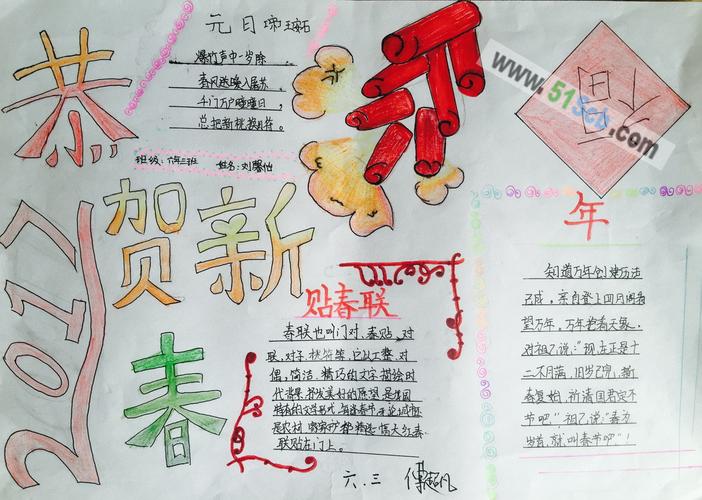 恭
贺新
春
2017
元日 王安石
爆竹声中一岁除
春风送暖入屠苏
千门万户曈曈日
总把新桃换旧符。
班级:六年三班 姓名:刘馨怡
福
www.51Scb.com
贴春联
春联也叫门对、春贴、对
联、对子、桃符等,它以工整、对
偶、简洁、精巧的文字描绘时
代背景、抒发美好的愿望,是我国
特有的文学形式,每逢春节,无论城市还
是农村,家家户户都精选一幅大红春
联贴在门上。
年
知道万年创建历法
已成,亲自登上日月阁看
望万年,万年指着天象,
对祖乙说:"现在正是十
二个月满,旧岁已完,新
春复始,祈请国君定个
节吧",祖乙说:"春为
岁首,就叫春节吧"!
六.三